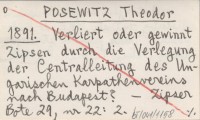 POSEWITZ Theodor
1891. Verliert oder gewinnt
Zipsen durch die Verlegung
der Centralleitung des Un-
garischen Karpathenvereins
nach Budapest? – Zipser
Bote 29, nr 22: 2.